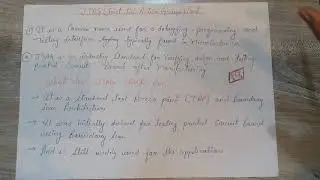 JTAG (Joint Test Action Group) Work
① It is a Common name used for a debugging, programming and
testing interface typically found in microcontroller
② JTAG is an industry Standard for verifying design and testing
printed Circuit Board after manufacturing.
What does JTAG
→ It is a standard Test Access point (TAP) and Boundary
Scan Architecture
→ It was initially for testing printed Circuit board
using Boundary Scan
→ still widely used for this application